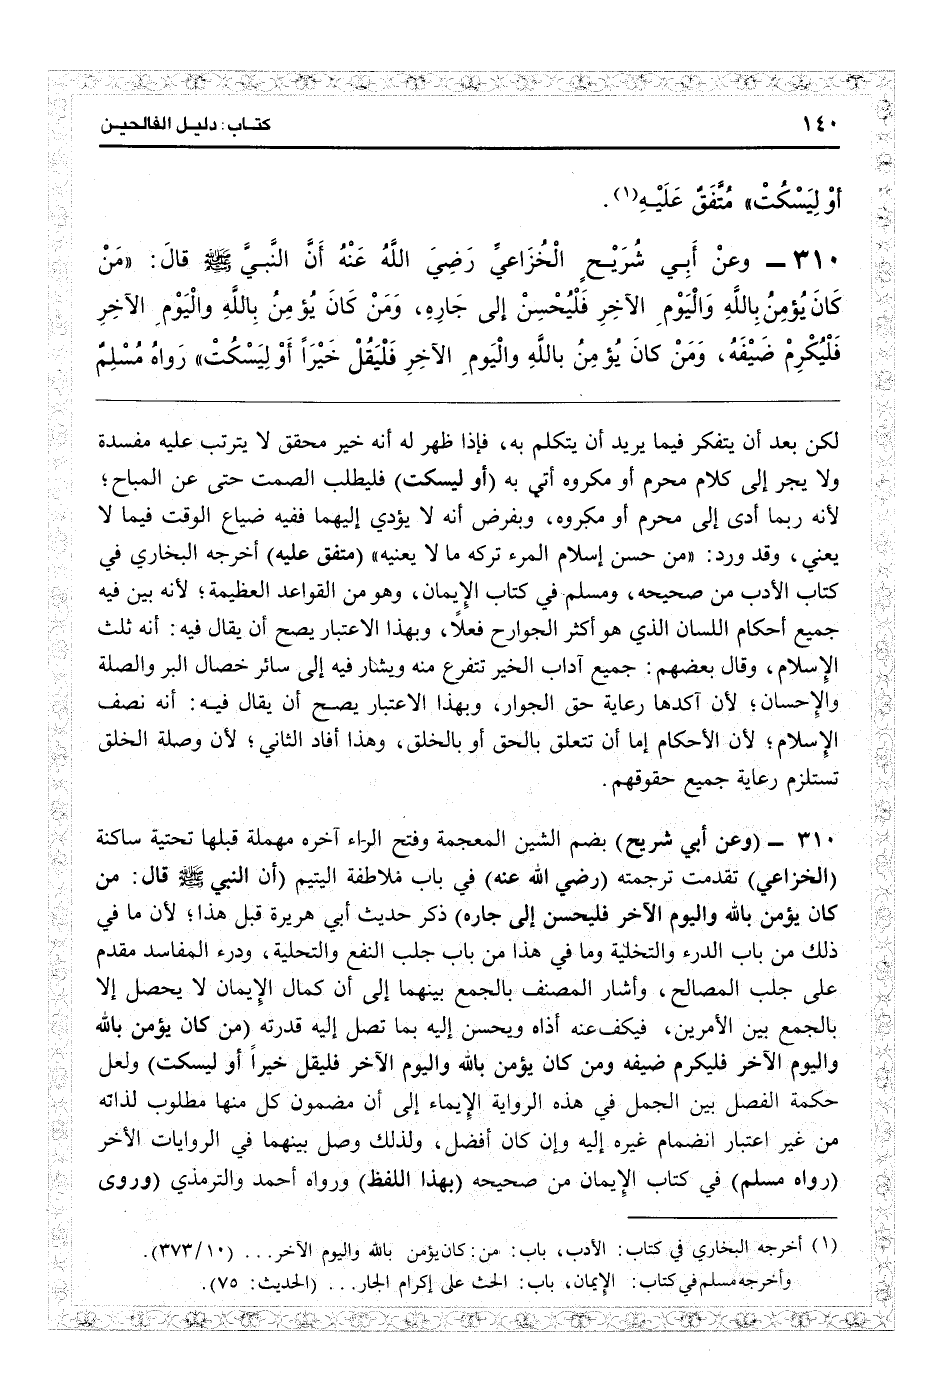 ١٤٠ كتاب: دليل الفالحين
أوْ لِيَسْكُتْ» مُتَّفَقٌ عَلَيْهِ(١).
٣١٠ ـ وعنْ أَبِي شُرَيْحٍ الْخُزَاعيِّ رَضِيَ اللَّهُ عَنْهُ أَنَّ النَّبيَّ ﷺ قالَ: «مَنْ
كَانَ يُؤمِنُ بِاللَّهِ وَالْيَوْمِ الآخِرِ فَلْيُحْسِنْ إلى جَارِهِ، وَمَنْ كَانَ يُؤمِنُ بِاللَّهِ والْيَوْمِ الآخِرِ
فَلْيُكْرِمْ ضَيْفَهُ، وَمَنْ كانَ يُؤمِنُ باللَّهِ والْيَومِ الآخِرِ فَلْيَقُلْ خَيْرَاً أَوْ لِيَسْكُتْ» رَواهُ مُسْلِمٌ
لكن بعد أن يتفكر فيما يريد أن يتكلم به، فإذا ظهر له أنه خير محقق لا يترتب عليه مفسدة
ولا يجر إلى كلام محرم أو مكروه أتي به (أو ليسكت) فليطلب الصمت حتى عن المباح؛
لأنه ربما أدى إلى محرم أو مكروه، وبفرض أنه لا يؤدي إليهما ففيه ضياع الوقت فيما لا
يعني، وقد ورد: «من حسن إسلام المرء تركه ما لا يعنيه» (متفق عليه) أخرجه البخاري في
كتاب الأدب من صحيحه، ومسلم في كتاب الإيمان، وهو من القواعد العظيمة؛ لأنه بين فيه
جميع أحكام اللسان الذي هو أكثر الجوارح فعلاً، وبهذا الاعتبار يصح أن يقال فيه: أنه ثلث
الإسلام، وقال بعضهم: جميع آداب الخير تتفرع منه ويشار فيه إلى سائر خصال البر والصلة
والإحسان؛ لأن آكدها رعاية حق الجوار، وبهذا الاعتبار يصح أن يقال فيه: أنه نصف
الإسلام؛ لأن الأحكام إما أن تتعلق بالحق أو بالخلق، وهذا أفاد الثاني؛ لأن وصلة الخلق
تستلزم رعاية جميع حقوقهم.
٣١٠ ـ (وعن أبي شريح) بضم الشين المعجمة وفتح الراء آخره مهملة قبلها تحتية ساكنة
(الخزاعي) تقدمت ترجمته (رضي الله عنه) في باب ملاطفة اليتيم (أن النبي ﷺ قال: من
كان يؤمن بالله واليوم الآخر فليحسن إلى جاره) ذكر حديث أبي هريرة قبل هذا؛ لأن ما في
ذلك من باب الدرء والتخلية وما في هذا من باب جلب النفع والتحلية، ودرء المفاسد مقدم
على جلب المصالح، وأشار المصنف بالجمع بينهما إلى أن كمال الإيمان لا يحصل إلا
بالجمع بين الأمرين، فيكف عنه أذاه ويحسن إليه بما تصل إليه قدرته (من كان يؤمن بالله
واليوم الآخر فليكرم ضيفه ومن كان يؤمن بالله واليوم الآخر فليقل خيراً أو ليسكت) ولعل
حكمة الفصل بين الجمل في هذه الرواية الإيماء إلى أن مضمون كل منها مطلوب لذاته
من غير اعتبار انضمام غيره إليه وإن كان أفضل، ولذلك وصل بينهما في الروايات الأخر
(رواه مسلم) في كتاب الإيمان من صحيحه (بهذا اللفظ) ورواه أحمد والترمذي (وروى
(١) أخرجه البخاري في كتاب: الأدب، باب: من: كان يؤمن بالله واليوم الآخر... (٣٧٣/١٠).
وأخرجه مسلم في كتاب: الإيمان، باب: الحث على إكرام الجار... (الحديث: ٧٥).